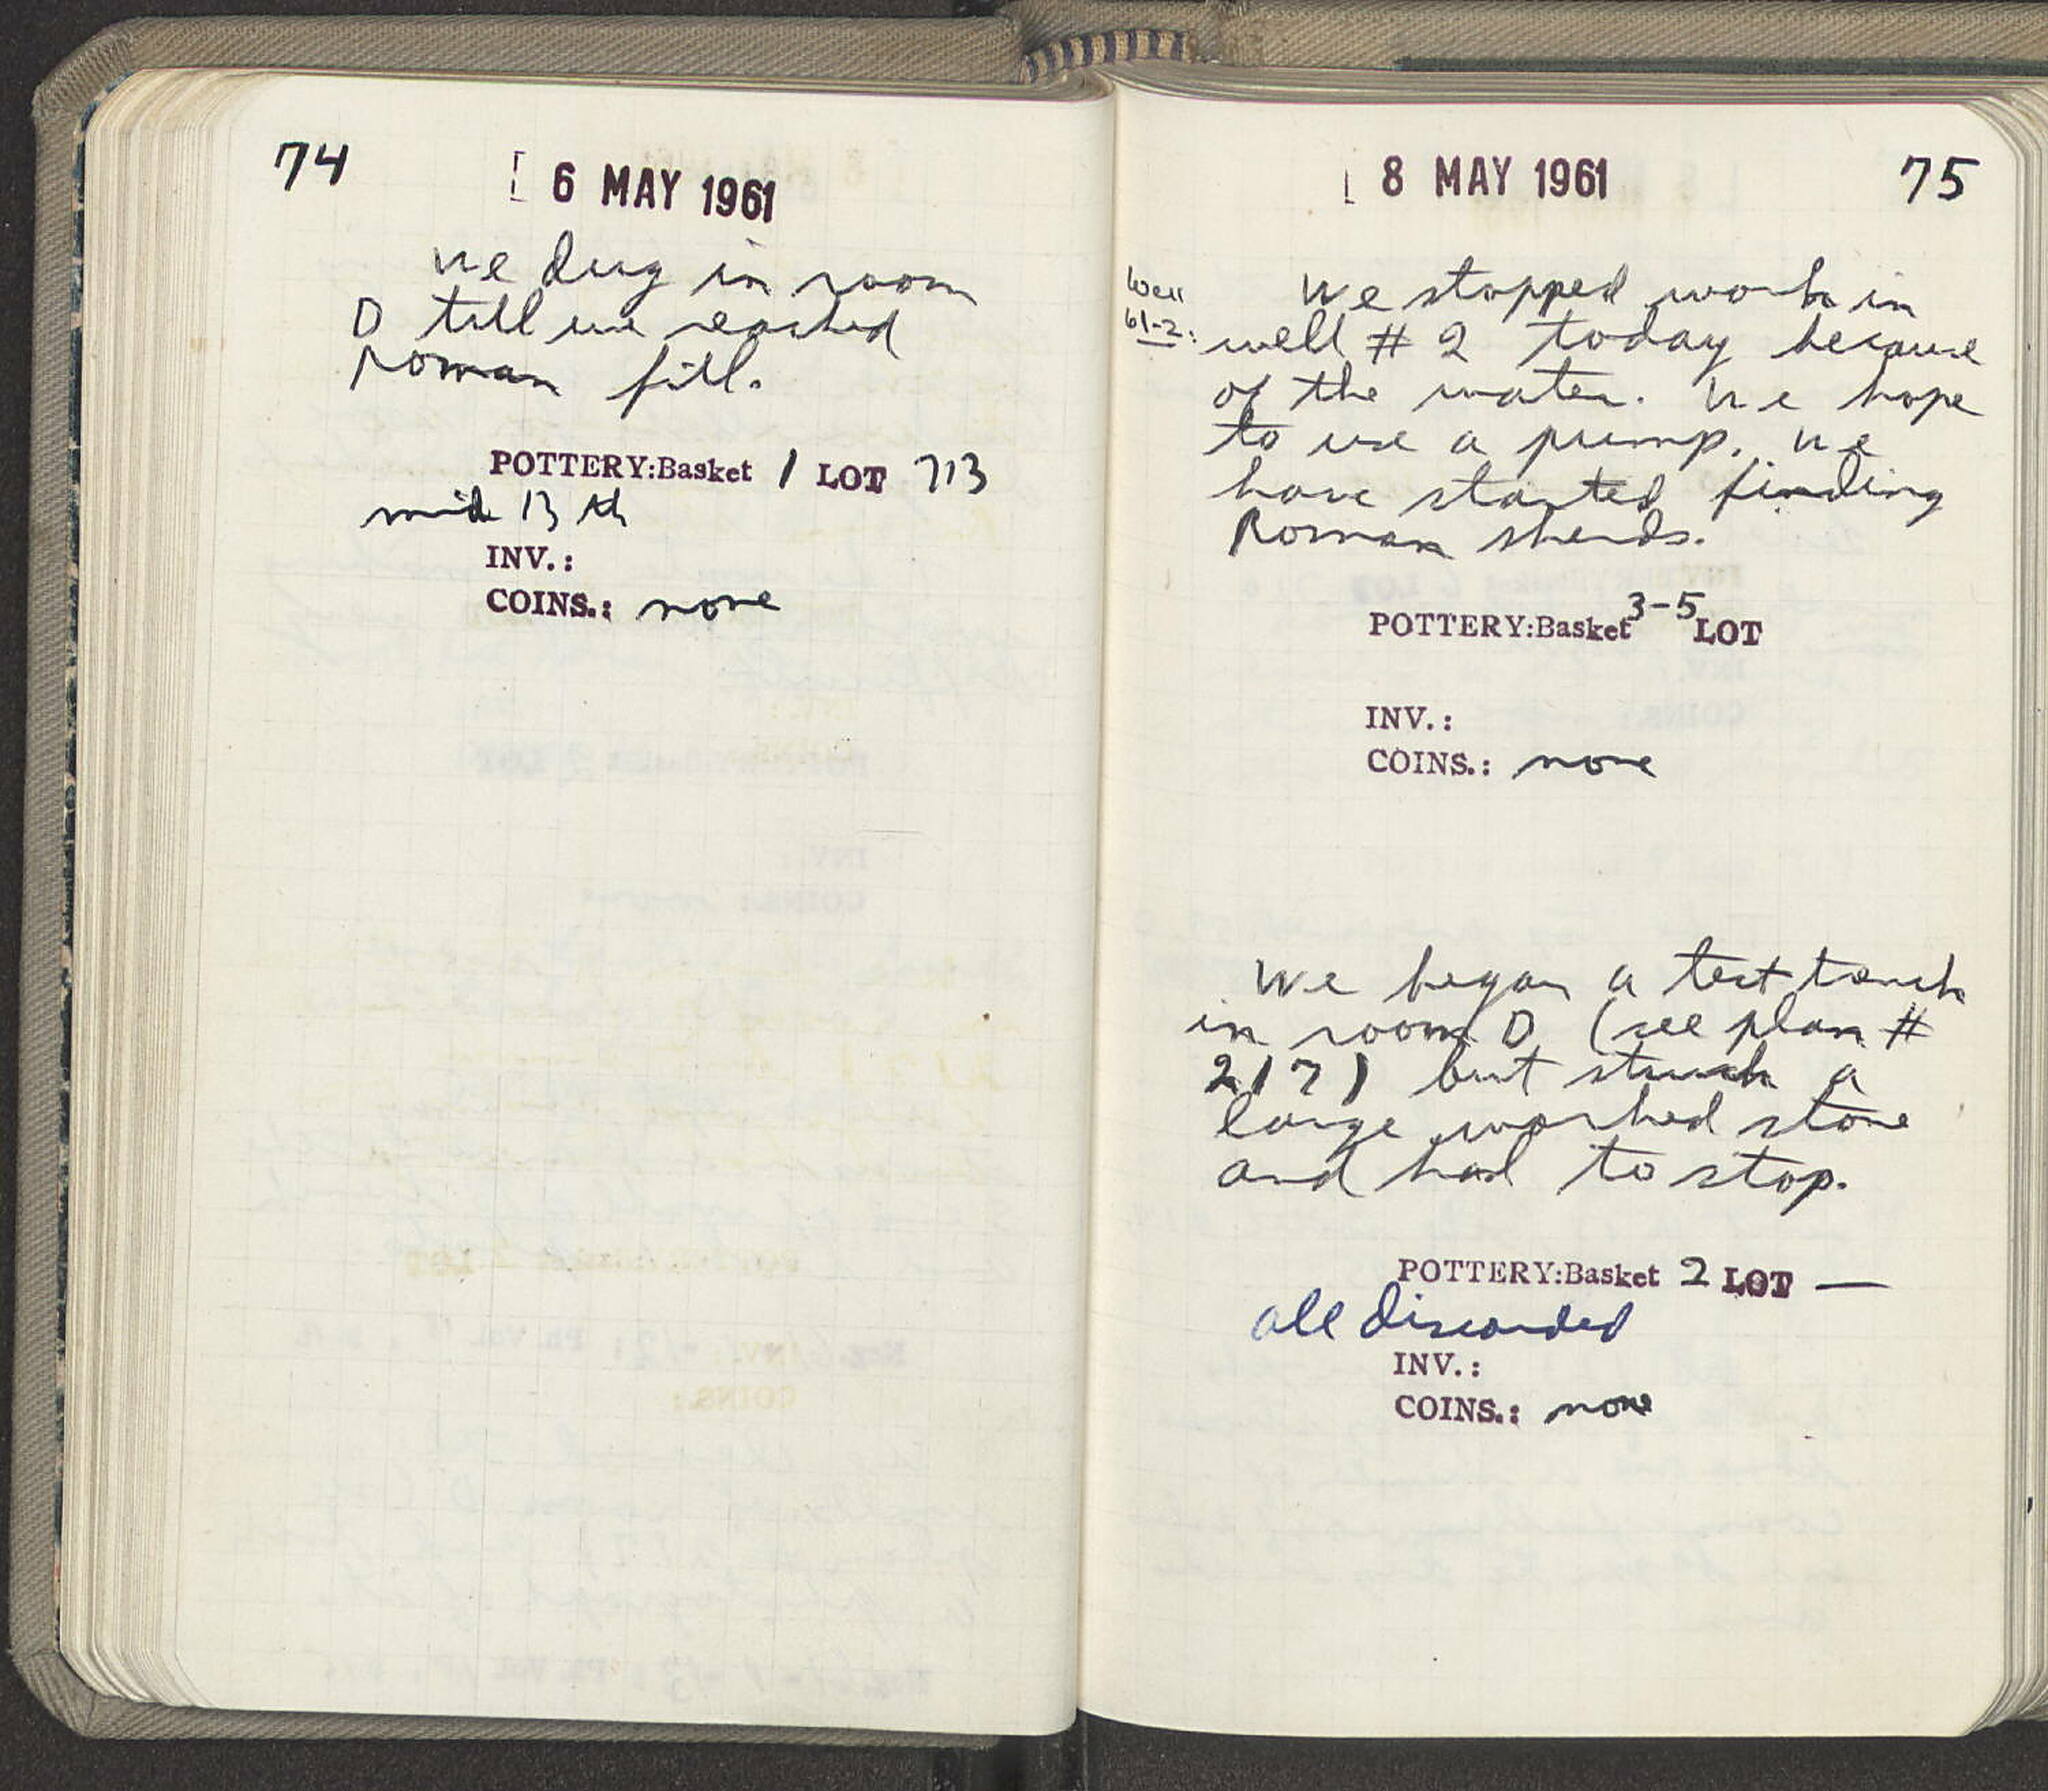 74
6 MAY 1961
We dug in room
D till we reached
Roman fill.
POTTERY:Basket 1 LOT 713
mid 13th
INV.:
COINS.: none
8 MAY 1961
75
Well
61-2:
We stopped work in
well # 2 today because
of the water. We hope
to use a pump. We
have started finding
Roman sherds.
POTTERY:Basket 3-5 LOT
INV.:
COINS.: none
We began a test trench
in room D (see plan #
217) but struck a
large worked stone
and had to stop.
POTTERY:Basket 2 LOT —
all discarded
INV.:
COINS.: none